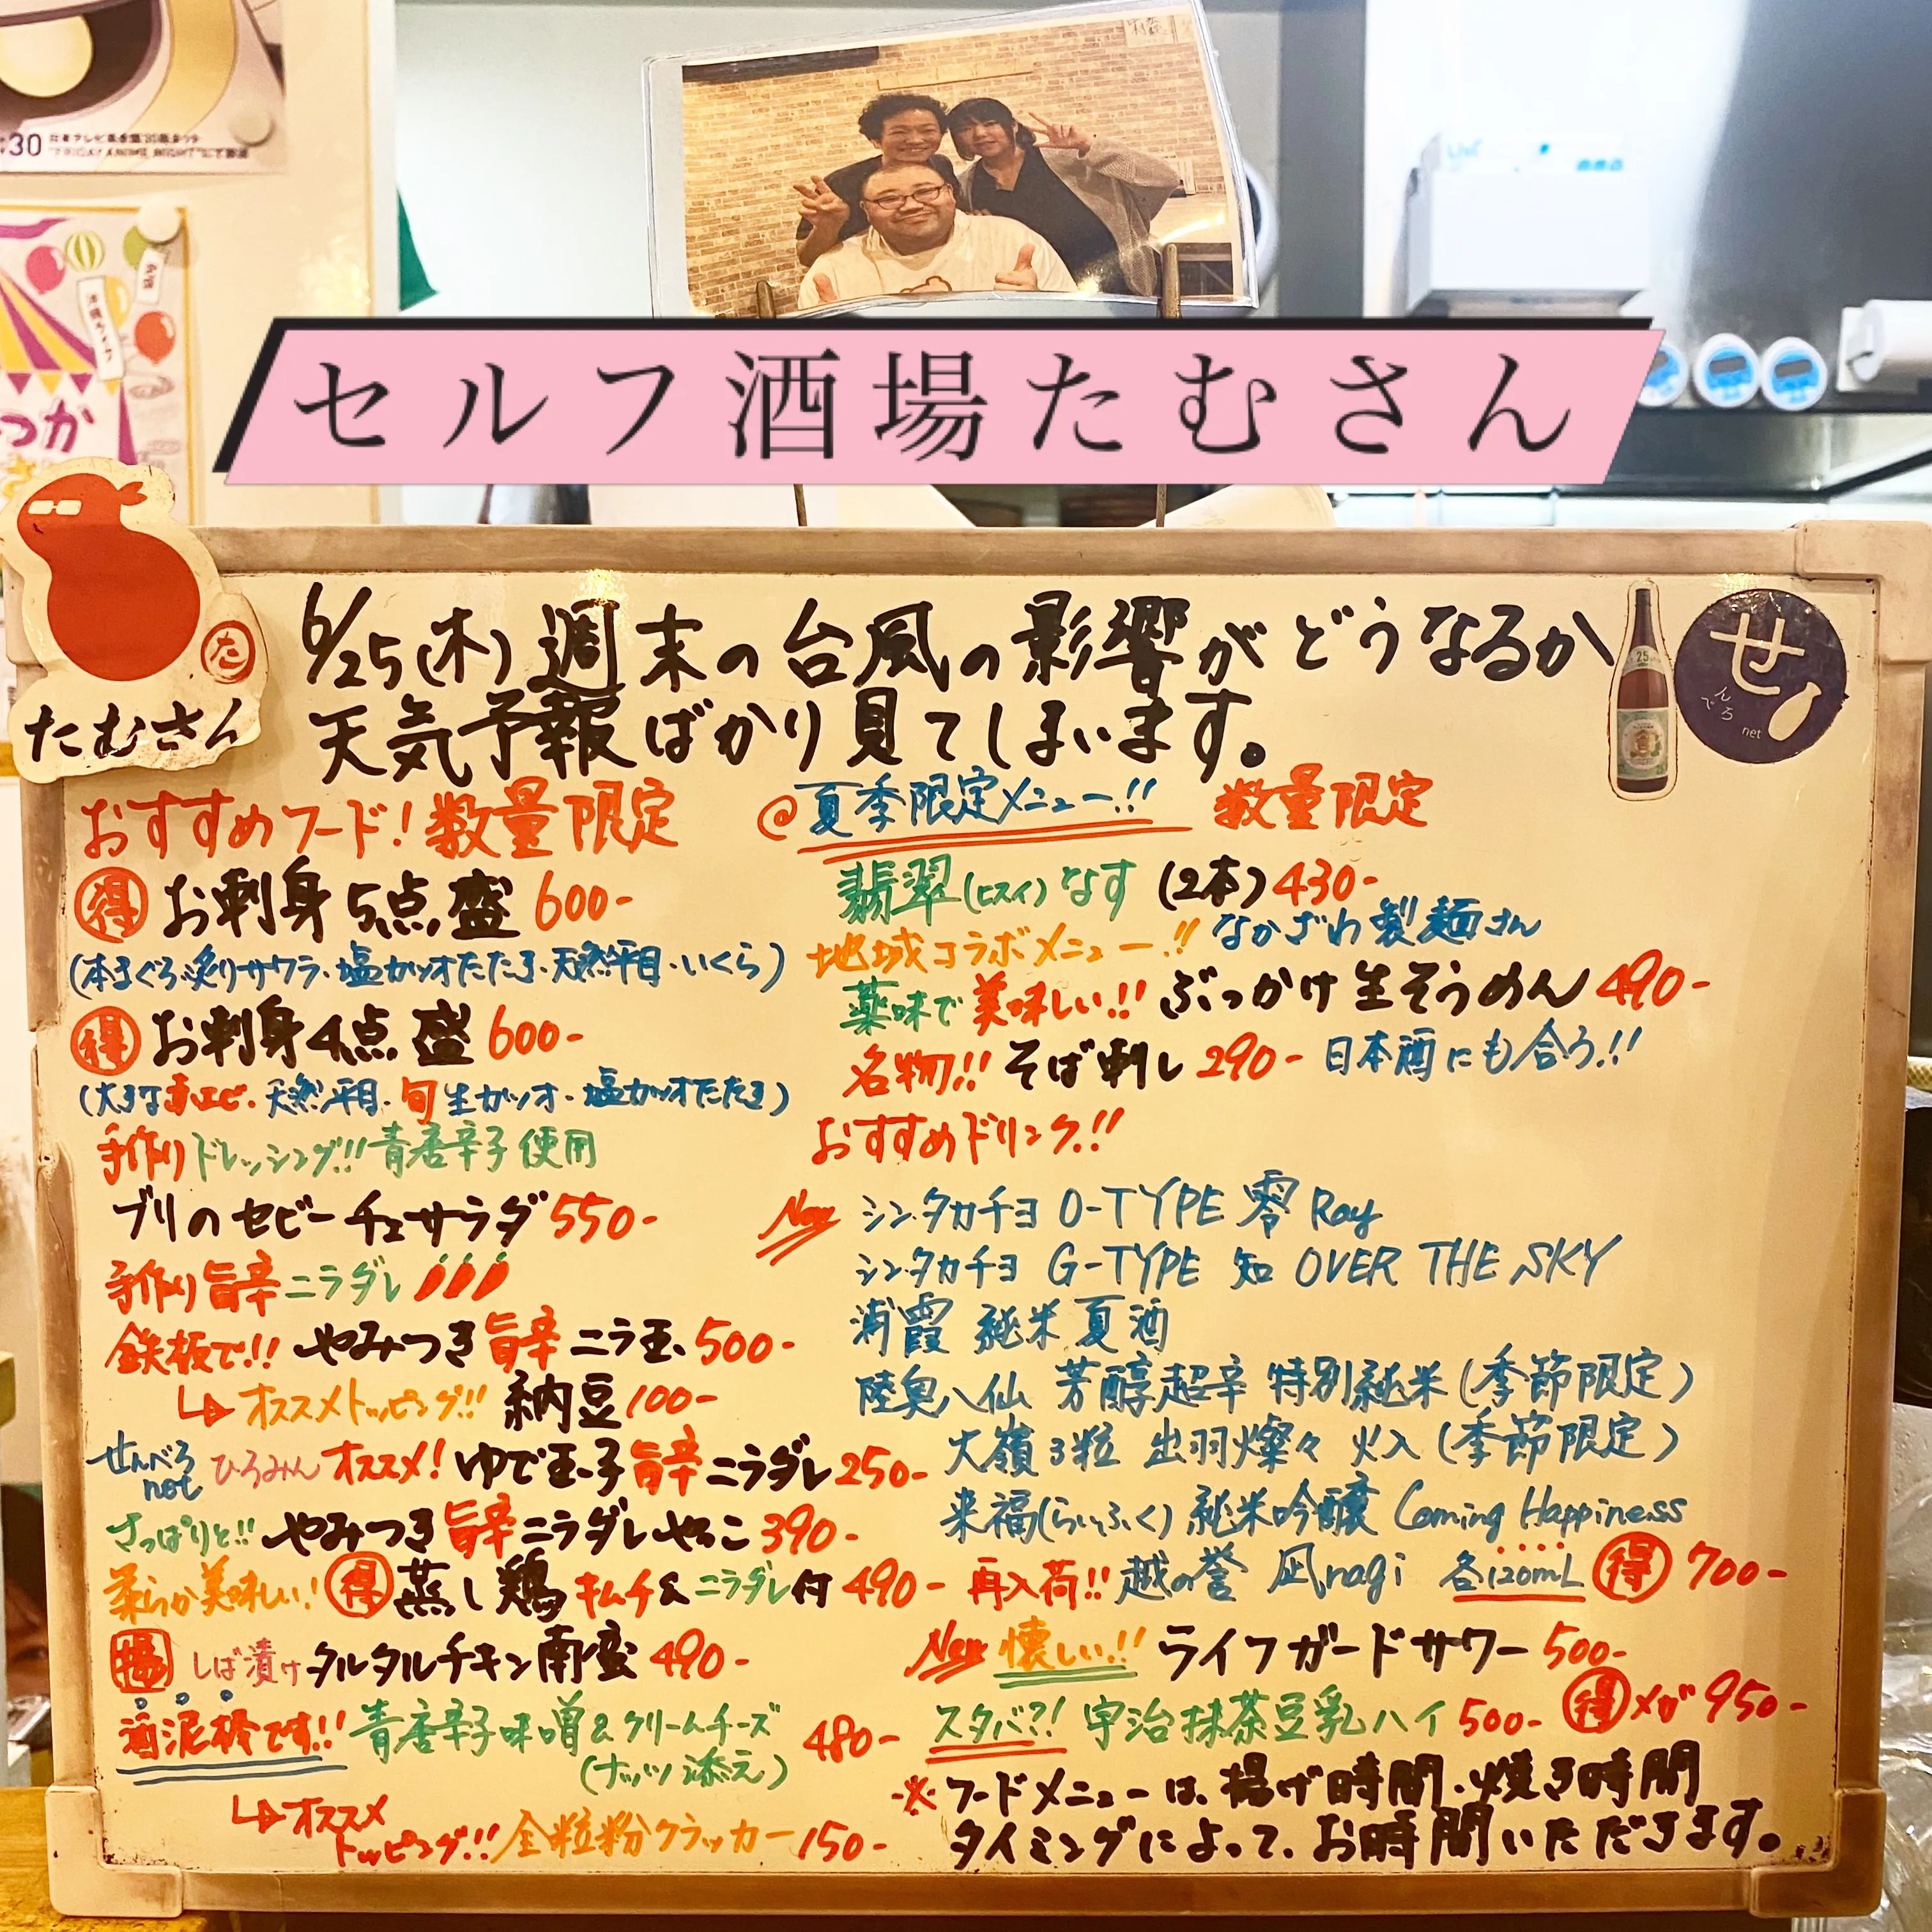 30
つか
セルフ酒場たむさん
た
たむさん
せ
んべろ
net
25
6/25(木)週末の台風の影響がどうなるか
天気予報ばかり見てしまいます。
おすすめフード!数量限定
得 お刺身5点盛 600-
(本まぐろ・炙りサワラ・塩カツオたたき・天然平目・いくら)
得 お刺身4点盛 600-
(大きな赤エビ・天然平目・旬生カツオ・塩カツオたたき)
手作りドレッシング!!青唐辛子使用
ブリのセビーチェサラダ 550-
手作り旨辛ニラダレ
鉄板で!! やみつき旨辛ニラ玉 500-
オススメトッピング!! 納豆 100-
せんべろnet ひろみんオススメ! ゆで玉子旨辛ニラダレ 250-
さっぱりと!! やみつき旨辛ニラダレやっこ 390-
柔らか美味しい! 得 蒸し鶏キムチ&ニラダレ付 490-
揚 しば漬けタルタルチキン南蛮 490-
酒泥棒です!! 青唐辛子味噌&クリームチーズ
(ナッツ添え) 480-
オススメ
トッピング!! 全粒粉クラッカー 150-
@夏季限定メニュー!! 数量限定
翡翠(ヒスイ)なす (2本) 430-
地域コラボメニュー!! なかざわ製麺さん
薬味で美味しい!! ぶっかけ生そうめん 490-
名物!! そば刺し 290- 日本酒にも合う!!
おすすめドリンク!!
New シン・タカチヨ O-TYPE 零 Ray
シン・タカチヨ G-TYPE 知 OVER THE SKY
浦霞 純米夏酒
陸奥八仙 芳醇超辛 特別純米(季節限定)
大嶺3粒 出羽燦々 火入(季節限定)
来福(らいふく)純米吟醸 Coming Happiness
再入荷!! 越の誉 凪nagi 各120mL 得 700-
New 懐しい!! ライフガードサワー 500-
スタバ?! 宇治抹茶豆乳ハイ 500- 得 メガ 950-
※フードメニューは、揚げ時間・焼き時間
タイミングによって、お時間いただきます。